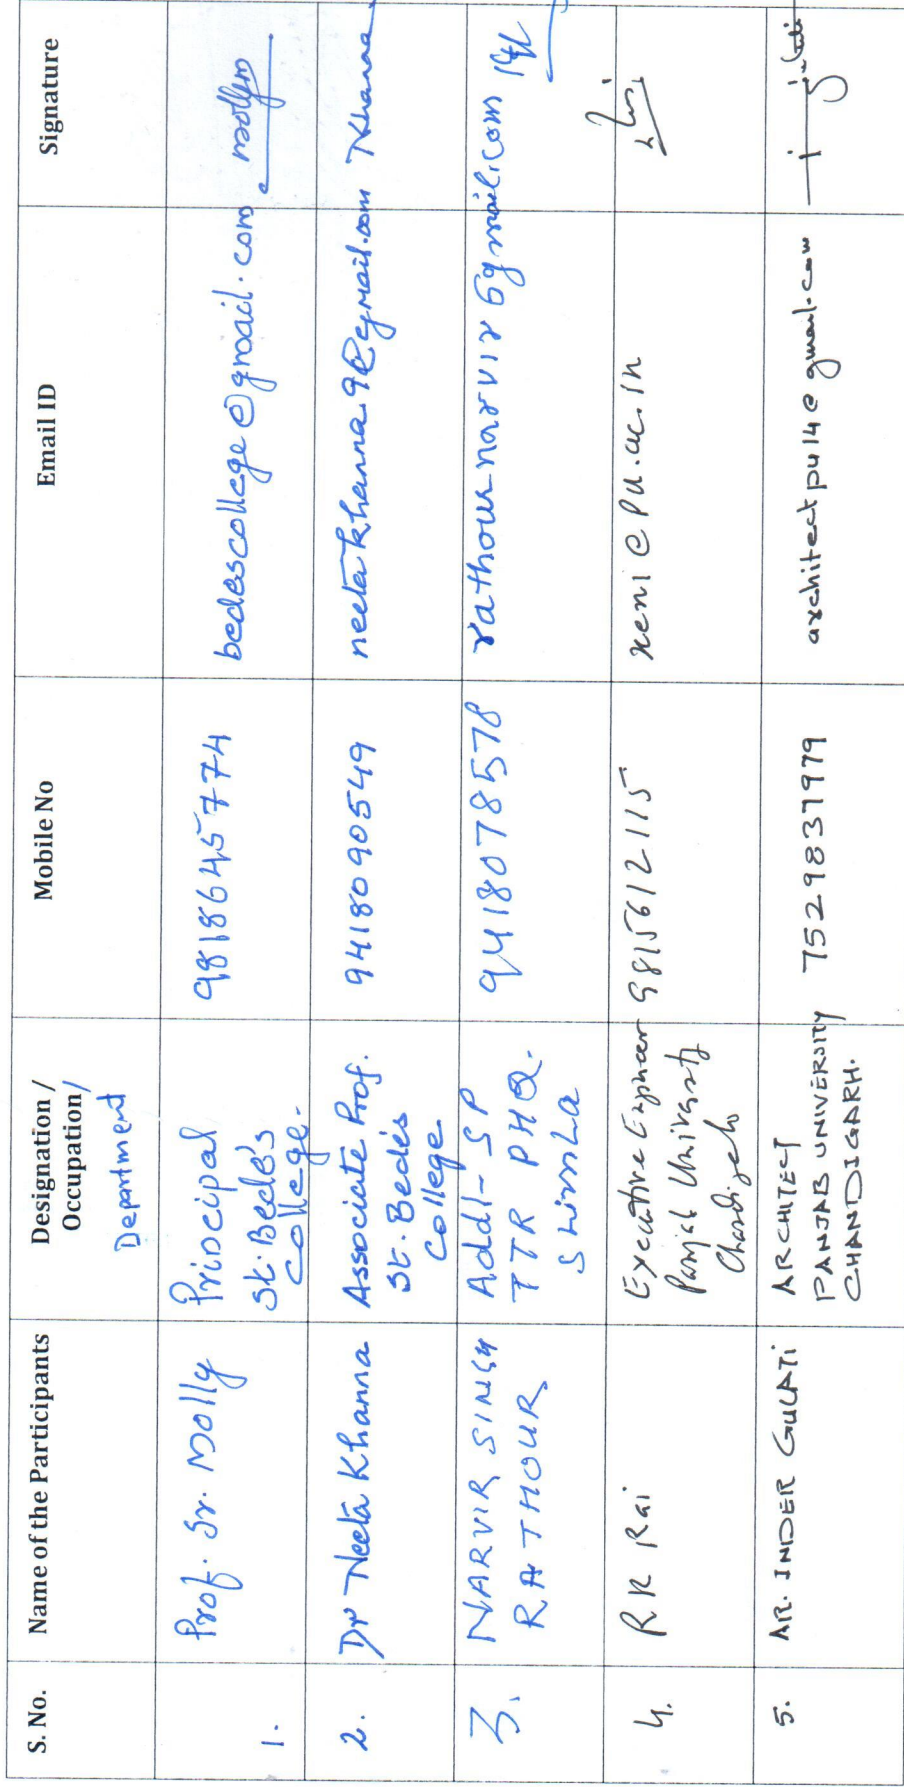 S. No.
Name of the Participants
Designation /
Occupation/
Department
Mobile No
Email ID
Signature
1.
Prof. Sr. Molly
Principal
St. Bede's
College.
9818645774
bedescollege@gmail.com
molly
2.
Dr Neeta Khanna
Associate Prof.
St. Bede's
College
9418090549
neetakhanna9@gmail.com
Khanna
3.
NARVIR SINGH
RATHOUR
Addl-SP
TTR PHQ.
Shimla
9418078578
rathournarvir6gmail.com
4.
RK Rai
Executive Engineer
Panjab University
Chandigarh
9815612115
xen1@pu.ac.in
5.
AR. INDER GULATI
ARCHITECT
PANJAB UNIVERSITY
CHANDIGARH.
7529837979
architectpu14@gmail.com